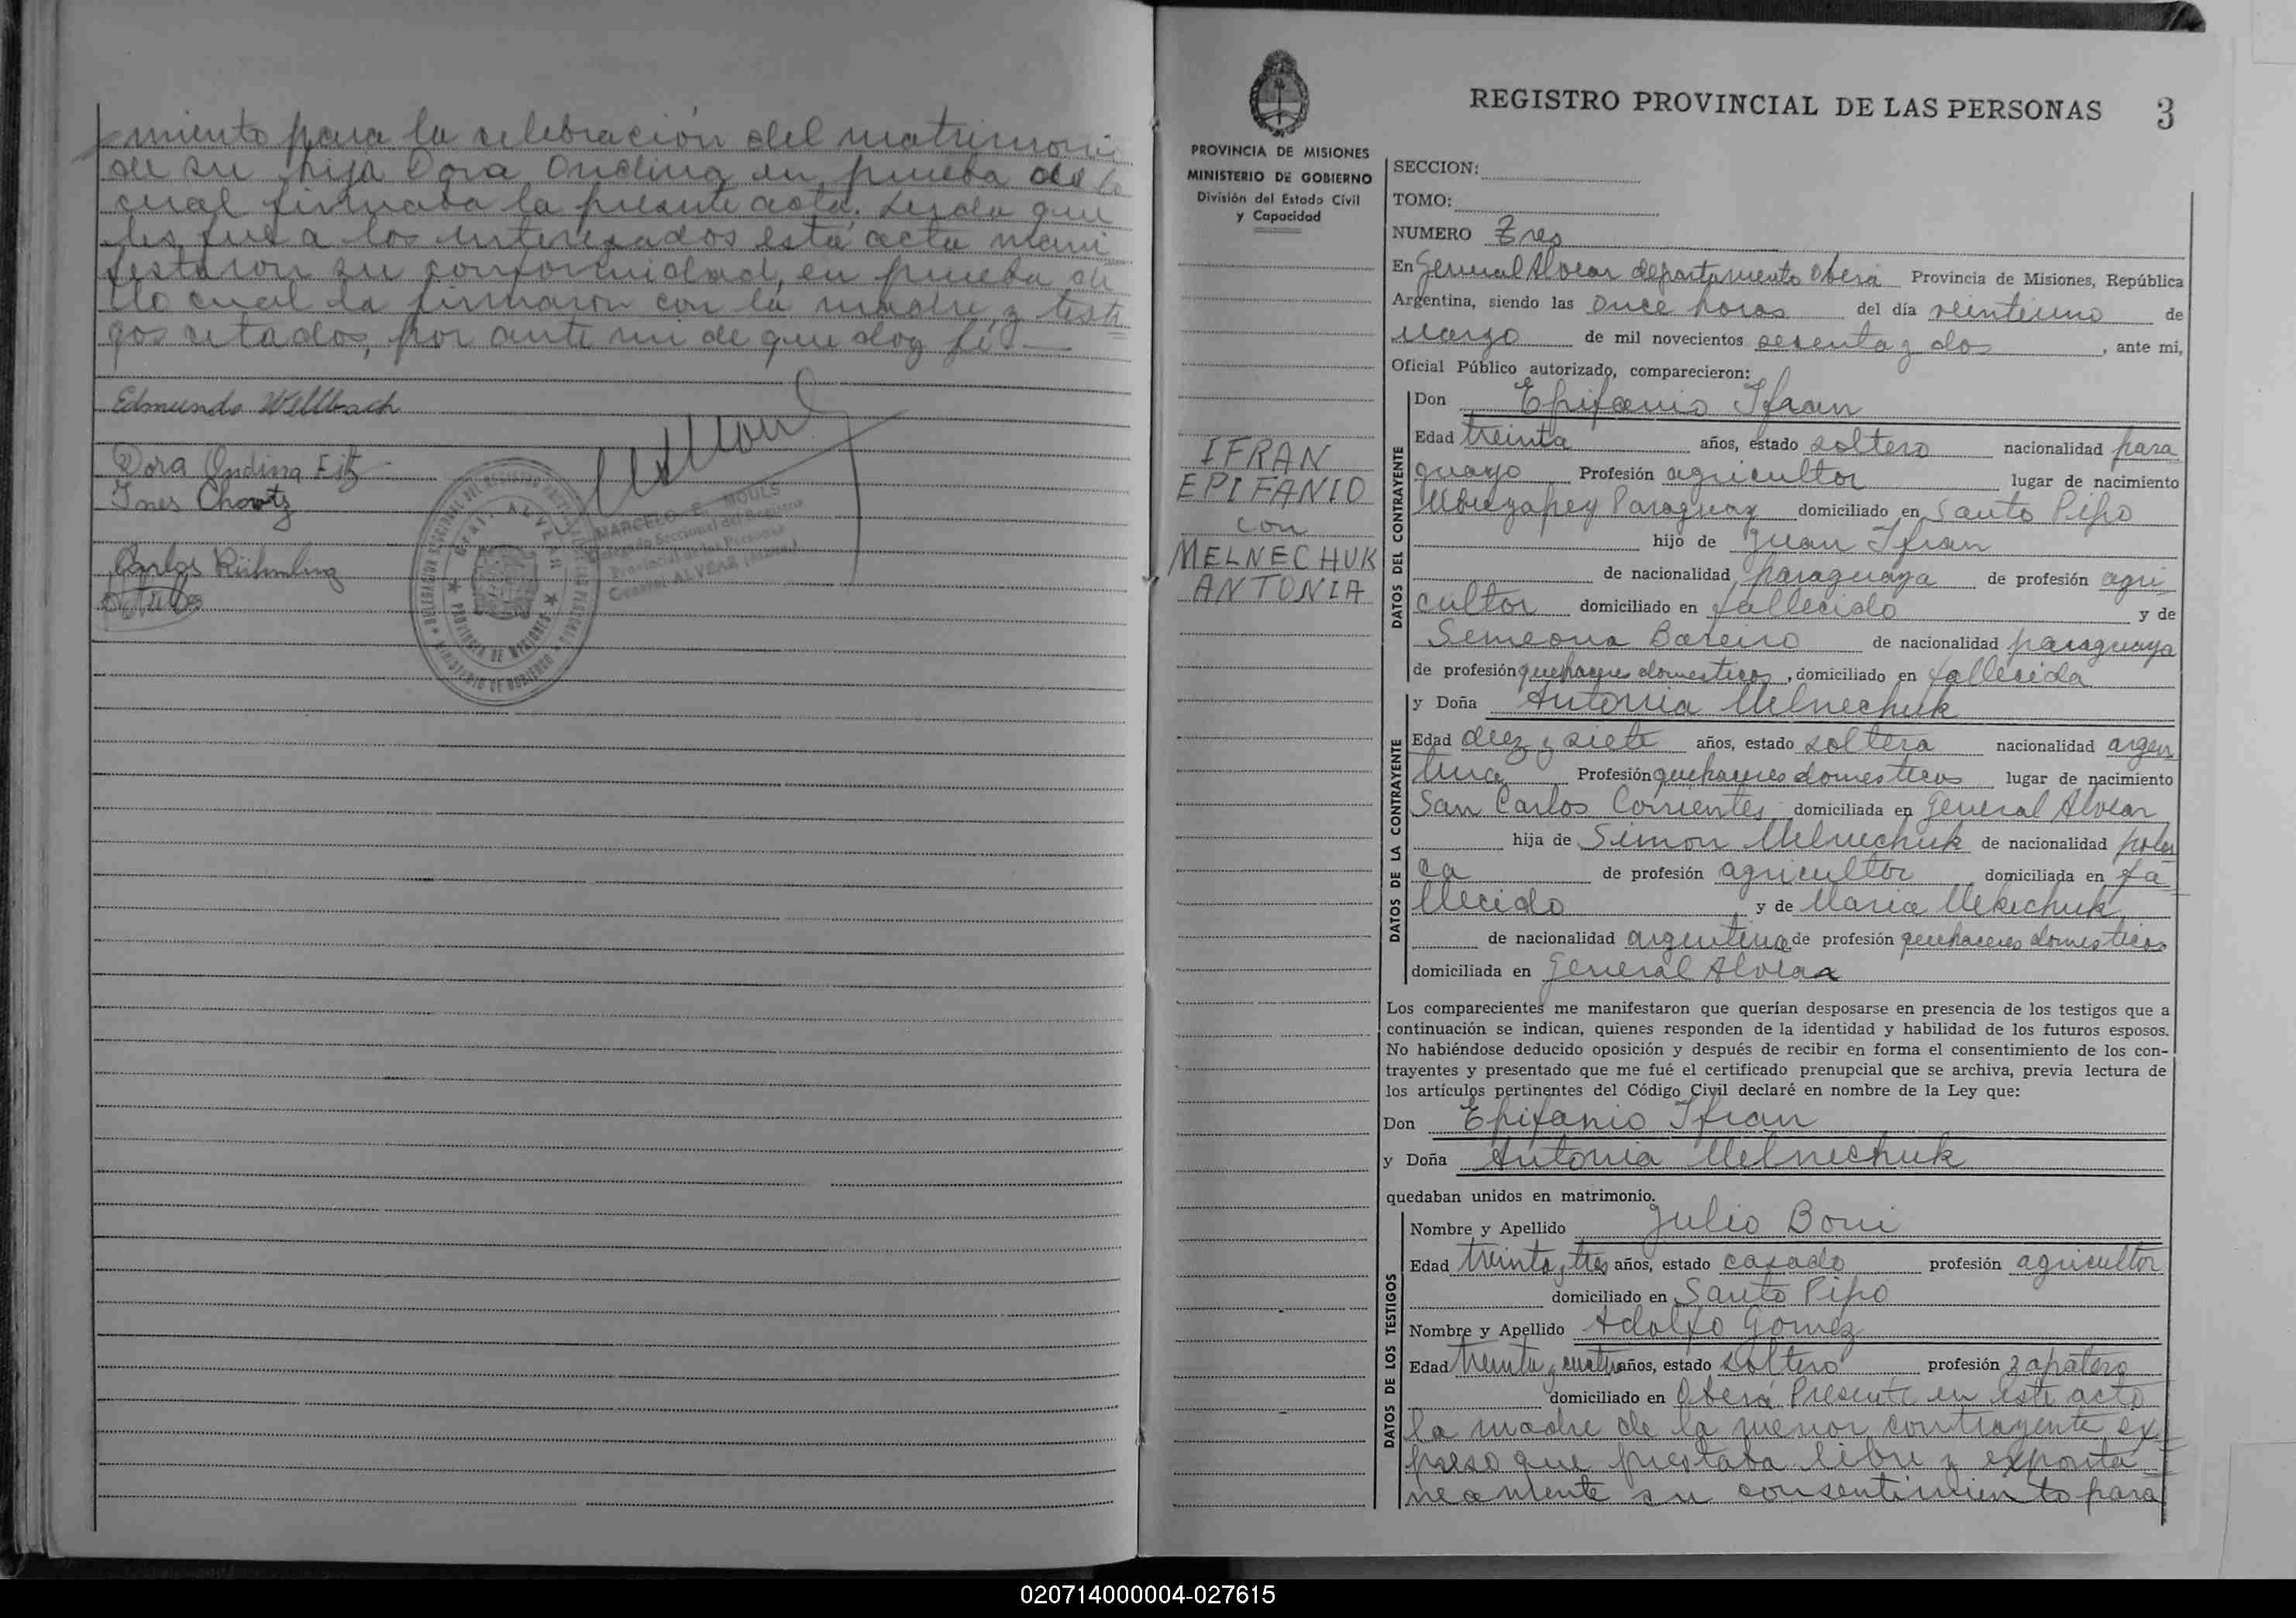 miento para la celebración del matrimonio
de su hija Dora Ondina en prueba de lo
cual firmaba la presente acta. Leida que
les fue a los interesados esta acta mani
festaron su conformidad, en prueba de
lo cual la firmaron con la madre y testi
gos citados, por ante mi de que doy fé.—
Edmundo Wellbach
Dora Ondina Eitz
Ines Chowtz
Carlos
MARCELO E. MOULS
Encargado Seccional del Registro
Provincial de las Personas
General ALVEAR
DELEGACION SECCIONAL DEL REGISTRO PROVINCIAL DE LAS PERSONAS
GRAL. ALVEAR
PROVINCIA DE MISIONES
MINISTERIO DE GOBIERNO
REGISTRO PROVINCIAL DE LAS PERSONAS 3
PROVINCIA DE MISIONES
MINISTERIO DE GOBIERNO
División del Estado Civil
y Capacidad
IFRAN
EPIFANIO
con
MELNECHUK
ANTONIA
SECCION:
TOMO:
NUMERO Tres
En General Alvear departamento Oberá Provincia de Misiones, República
Argentina, siendo las once horas del día veintiuno de
marzo de mil novecientos sesenta y dos, ante mi,
Oficial Público autorizado, comparecieron:
DATOS DEL CONTRAYENTE
Don Epifanio Ifran
Edad treinta años, estado soltero nacionalidad para
guayo Profesión agricultor lugar de nacimiento
Paraguay domiciliado en Santo Pipo
hijo de Juan Ifran
de nacionalidad paraguaya de profesión agri
cultor domiciliado en fallecido y de
Semeona Bareiro de nacionalidad paraguaya
de profesión quehaceres domesticos, domiciliado en fallecida
DATOS DE LA CONTRAYENTE
y Doña Antonia Melnechuk
Edad diez y siete años, estado soltera nacionalidad argen
tina Profesión quehaceres domesticos lugar de nacimiento
San Carlos Corrientes domiciliada en General Alvear
hija de Simon Melnechuk de nacionalidad pola
ca de profesión agricultor domiciliada en fa
llecido y de Maria Mekechuk,
de nacionalidad argentina de profesión quehaceres domesticos
domiciliada en General Alvear
Los comparecientes me manifestaron que querían desposarse en presencia de los testigos que a
continuación se indican, quienes responden de la identidad y habilidad de los futuros esposos.
No habiéndose deducido oposición y después de recibir en forma el consentimiento de los con-
trayentes y presentado que me fué el certificado prenupcial que se archiva, previa lectura de
los artículos pertinentes del Código Civil declaré en nombre de la Ley que:
Don Epifanio Ifran
y Doña Antonia Melnechuk
quedaban unidos en matrimonio.
DATOS DE LOS TESTIGOS
Nombre y Apellido Julio Boni
Edad treinta y tres años, estado casado profesión agricultor
domiciliado en Santo Pipo
Nombre y Apellido Adolfo Gomez
Edad treinta y cuatro años, estado soltero profesión zapatero
domiciliado en Oberá Presente en este acto
la madre de la menor contrayente, ex
preso que prestaba libre y exponta
neamente su consentimiento para
020714000004-027615